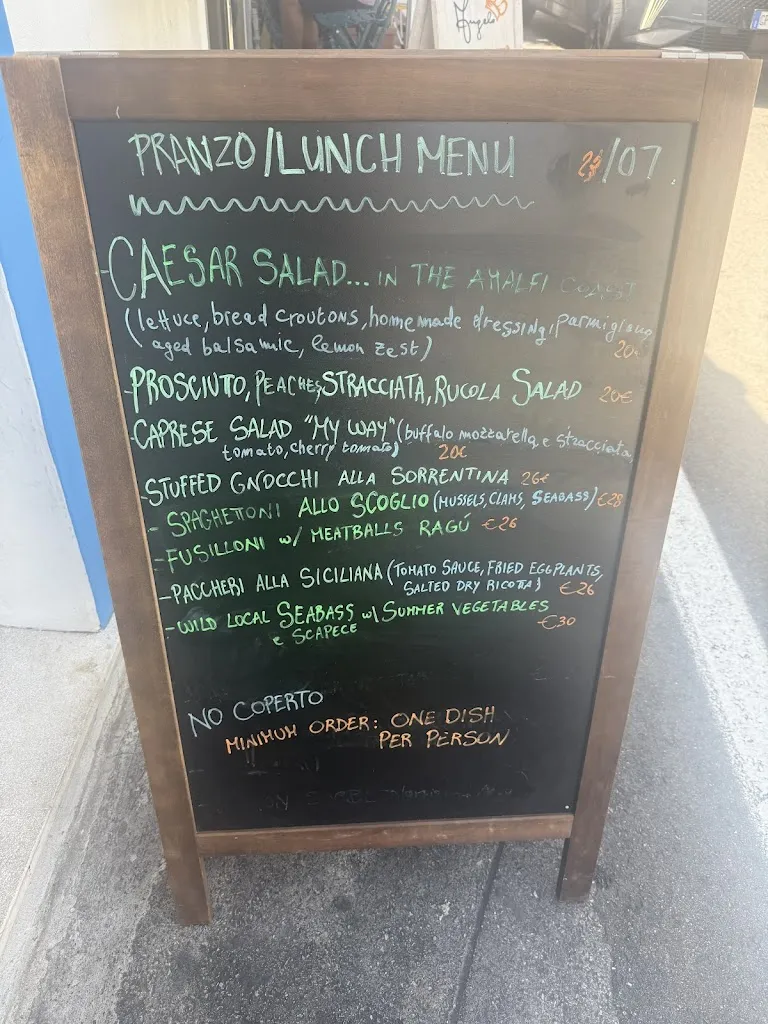 Angelo
PRANZO/LUNCH MENU /07
-CAESAR SALAD... IN THE AMALFI COAST
(lettuce, bread croutons, homemade dressing, parmigiano
aged balsamic, lemon zest) 20€
-PROSCIUTTO, PEACHES, STRACCIATA, RUCOLA SALAD 20€
-CAPRESE SALAD "MY WAY" (buffalo mozzarella e stracciata,
tomato, cherry tomato) 20€
-STUFFED GNOCCHI ALLA SORRENTINA 26€
- SPAGHETTONI ALLO SCOGLIO (MUSSELS, CLAMS, SEABASS) €28
-FUSILLONI w/ MEATBALLS RAGÚ €26
-PACCHERI ALLA SICILIANA (TOMATO SAUCE, FRIED EGGPLANTS,
SALTED DRY RICOTTA) €26
-WILD LOCAL SEABASS w/ SUMMER VEGETABLES
e SCAPECE €30
NO COPERTO
MINIMUM ORDER: ONE DISH
PER PERSON